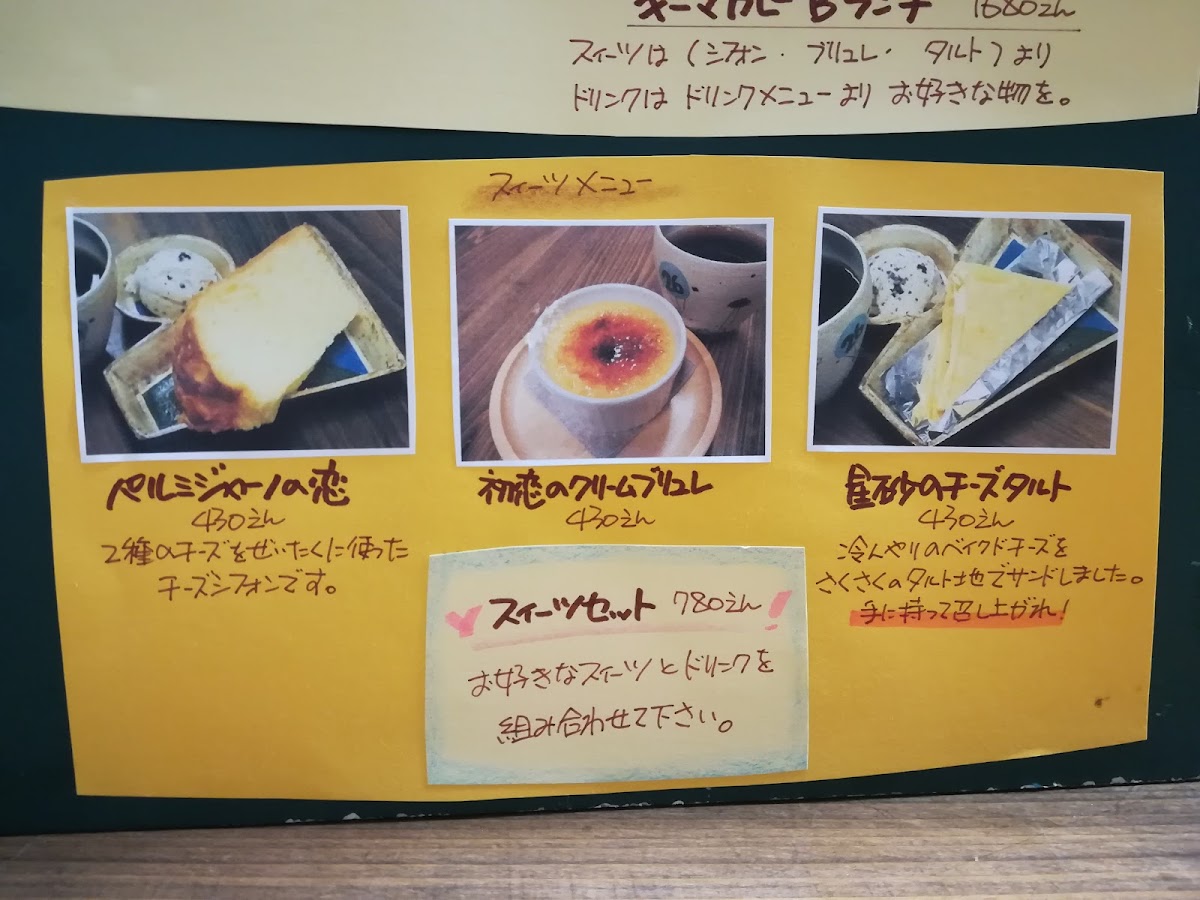 キーマカレーBランチ 1680えん
スイーツは(シフォン・ブリュレ・タルト)より
ドリンクはドリンクメニューより お好きな物を。
スイーツメニュー
ペルミジャーノの恋
430えん
2種のチーズをぜいたくに使った
チーズシフォンです。
初恋のクリームブリュレ
430えん
星砂のチーズタルト
430えん
冷んやりのベイクドチーズを
さくさくのタルト地でサンドしました。
手に持って召し上がれ!
スイーツセット 780えん!
お好きなスイーツとドリンクを
組み合わせて下さい。
26